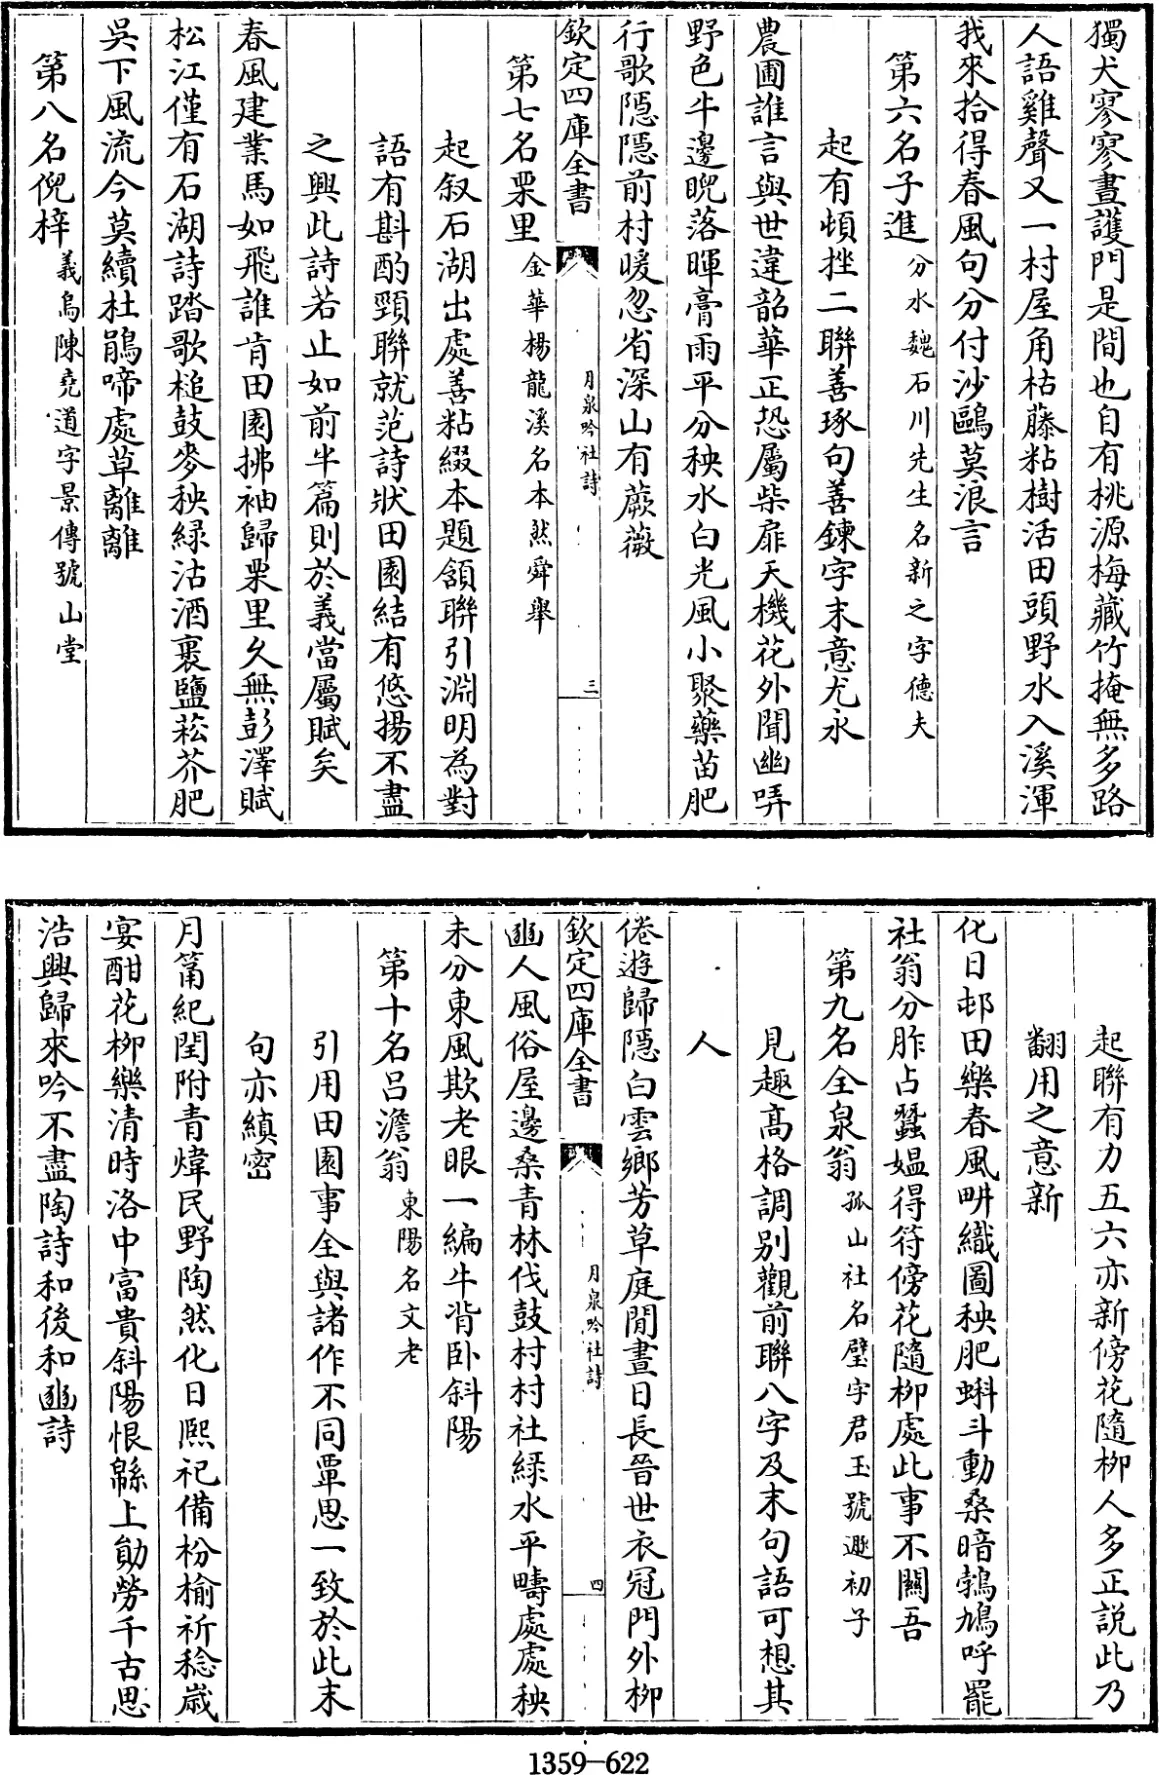 獨犬寥寥晝護門是間也自有桃源梅藏竹掩無多路
人語雞聲又一村屋角枯藤粘樹活田頭野水入溪渾
我來拾得春風句分付沙鷗莫浪言
第六名子進分水魏石川先生名新之字德夫
起有頓挫二聯善琢句善鍊字末意尤永
農圃誰言與世違韶華正恐屬柴扉天機花外聞幽哢
野色牛邊睨落暉膏雨平分秧水白光風小聚藥苗肥
行歌隱隱前村暖忽省深山有蕨薇
欽定四庫全書
月泉吟社詩
三
第七名栗里金華楊龍溪名本然舜舉
起叙石湖出處善粘綴本題頷聯引淵明為對
語有斟酌頸聯就范詩狀田園結有悠揚不盡
之興此詩若止如前半篇則於義當屬賦矣
春風建業馬如飛誰肯田園拂袖歸栗里久無彭澤賦
松江僅有石湖詩踏歌槌鼓麥秧緑沽酒裹鹽菘芥肥
吳下風流今莫續杜鵑啼處草離離
第八名倪梓義烏陳堯道字景傳號山堂
起聯有力五六亦新傍花隨柳人多正説此乃
翻用之意新
化日邨田樂春風畊織圖秧肥蝌斗動桑暗鵓鳩呼罷
社翁分胙占蠶媪得符傍花隨柳處此事不關吾
第九名全泉翁孤山社名璧字君玉號遯初子
見趣高格調别觀前聯八字及末句語可想其
人
倦遊歸隱白雲鄉芳草庭閒晝日長晉世衣冠門外柳
豳人風俗屋邊桑青林伐鼓村村社緑水平疇處處秧
未分東風欺老眼一編牛背卧斜陽
欽定四庫全書
月泉吟社詩
四
第十名呂澹翁東陽名文老
引用田園事全與諸作不同覃思一致於此末
句亦縝密
月筩紀閏附青煒民野陶然化日熙祀備枌榆祈稔歲
宴酣花柳樂清時洛中富貴斜陽恨緜上勛勞千古思
浩興歸來吟不盡陶詩和後和豳詩
1359-622